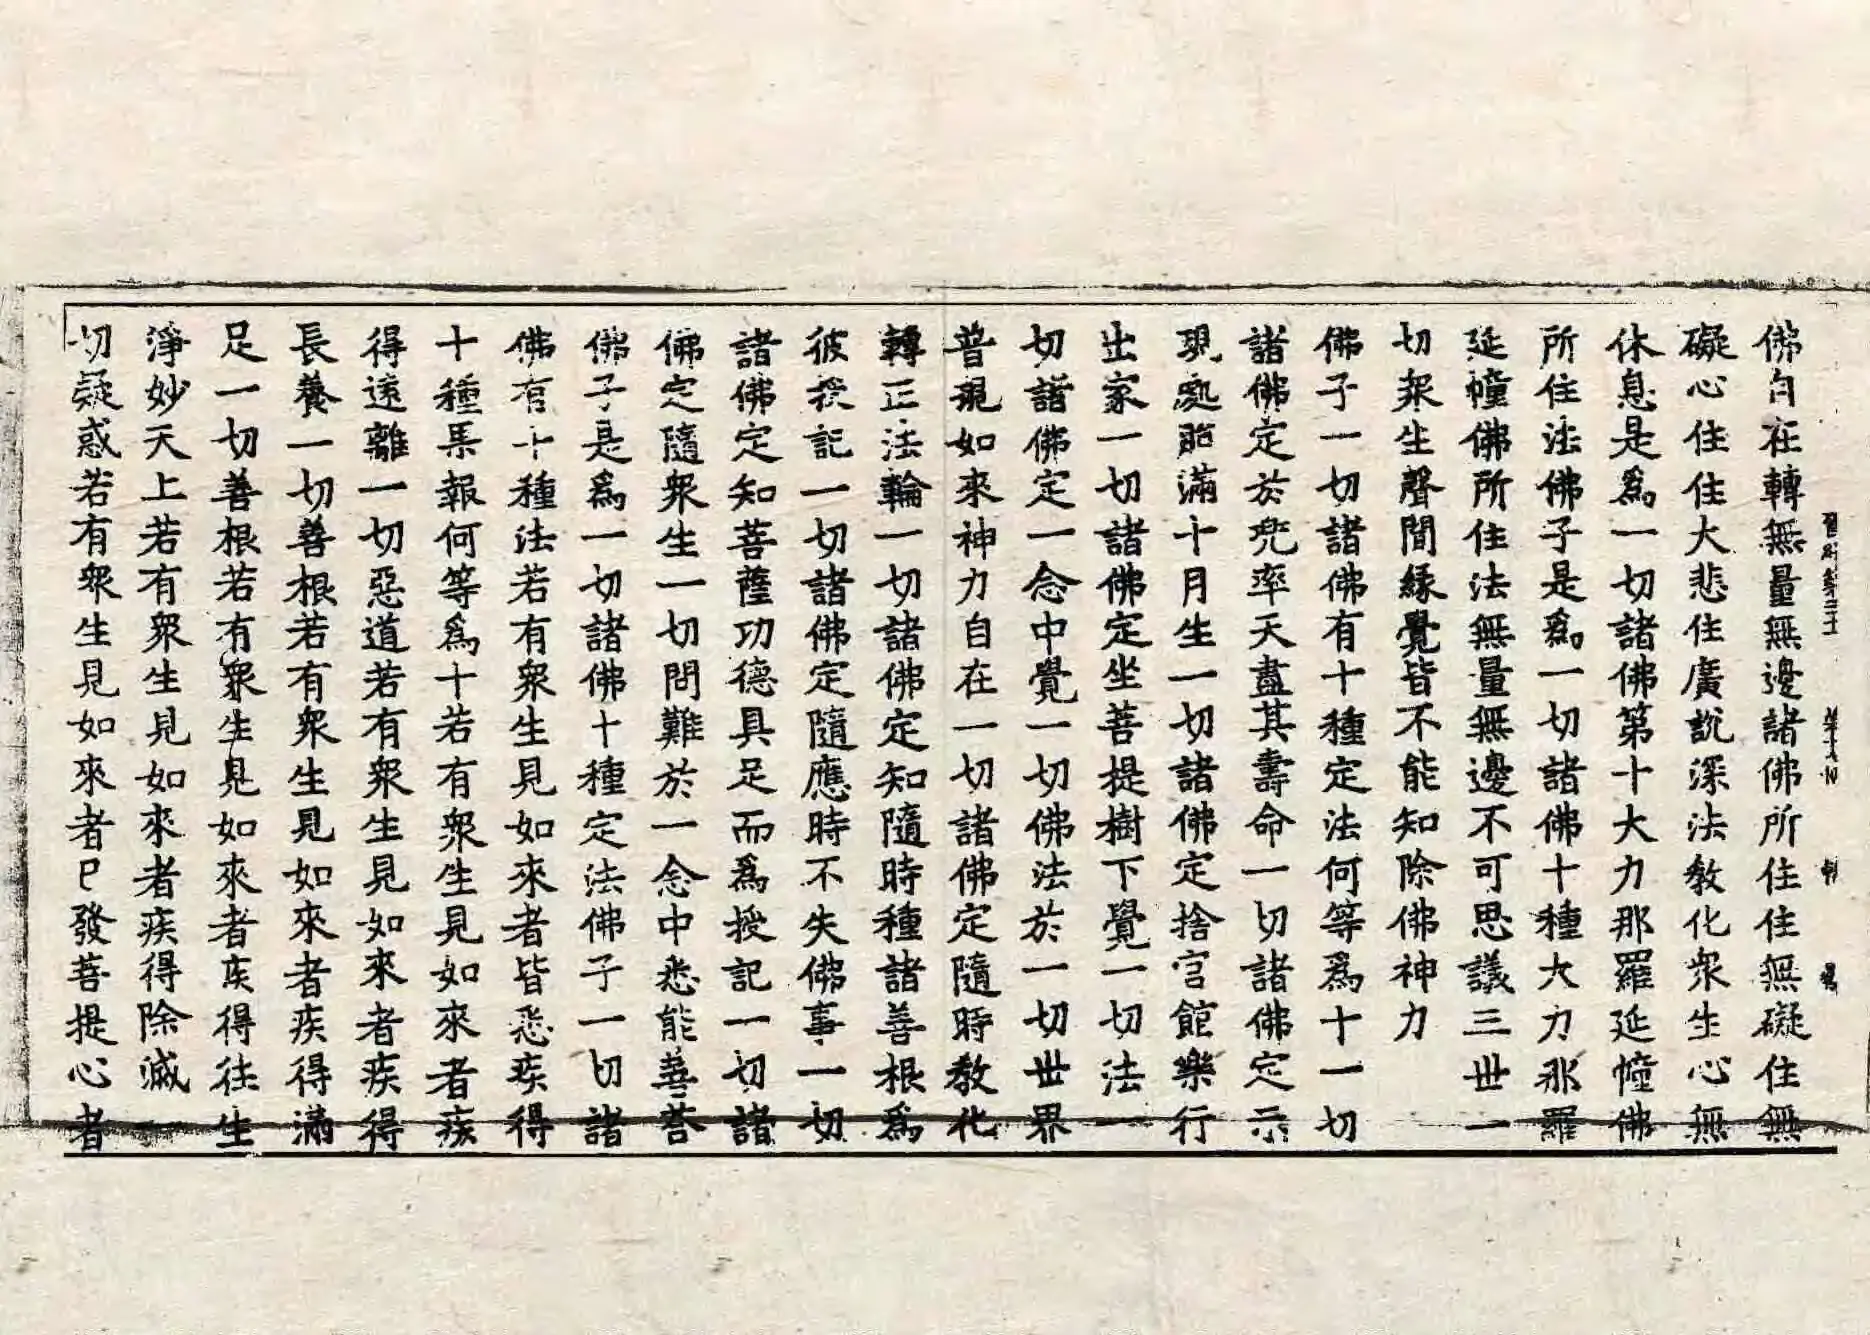 佛自在轉無量無邊諸佛所住住無礙住無
礙心住住大悲住廣說深法教化衆生心無
休息是爲一切諸佛第十大力那羅延幢佛
所住法佛子是爲一切諸佛十種大力那羅
延幢佛所住法無量無邊不可思議三世一
切衆生聲聞緣覺皆不能知除佛神力
佛子一切諸佛有十種定法何等爲十一切
諸佛定於兜率天盡其壽命一切諸佛定示
現處胎滿十月生一切諸佛定捨宮館樂行
出家一切諸佛定坐菩提樹下覺一切法一
切諸佛定一念中覺一切佛法於一切世界
普現如來神力自在一切諸佛定隨時教化
轉正法輪一切諸佛定知隨時種諸善根爲
彼授記一切諸佛定隨應時不失佛事一切
諸佛定知菩薩功德具足而爲授記一切諸
佛定隨衆生一切問難於一念中悉能善荅
佛子是爲一切諸佛十種定法佛子一切諸
佛有十種法若有衆生見如來者皆悉疾得
十種果報何等爲十若有衆生見如來者疾
得遠離一切惡道若有衆生見如來者疾得
長養一切善根若有衆生見如來者疾得滿
足一切善根若有衆生見如來者疾得往生
淨妙天上若有衆生見如來者疾得除滅一
切疑惑若有衆生見如來者已發菩提心者